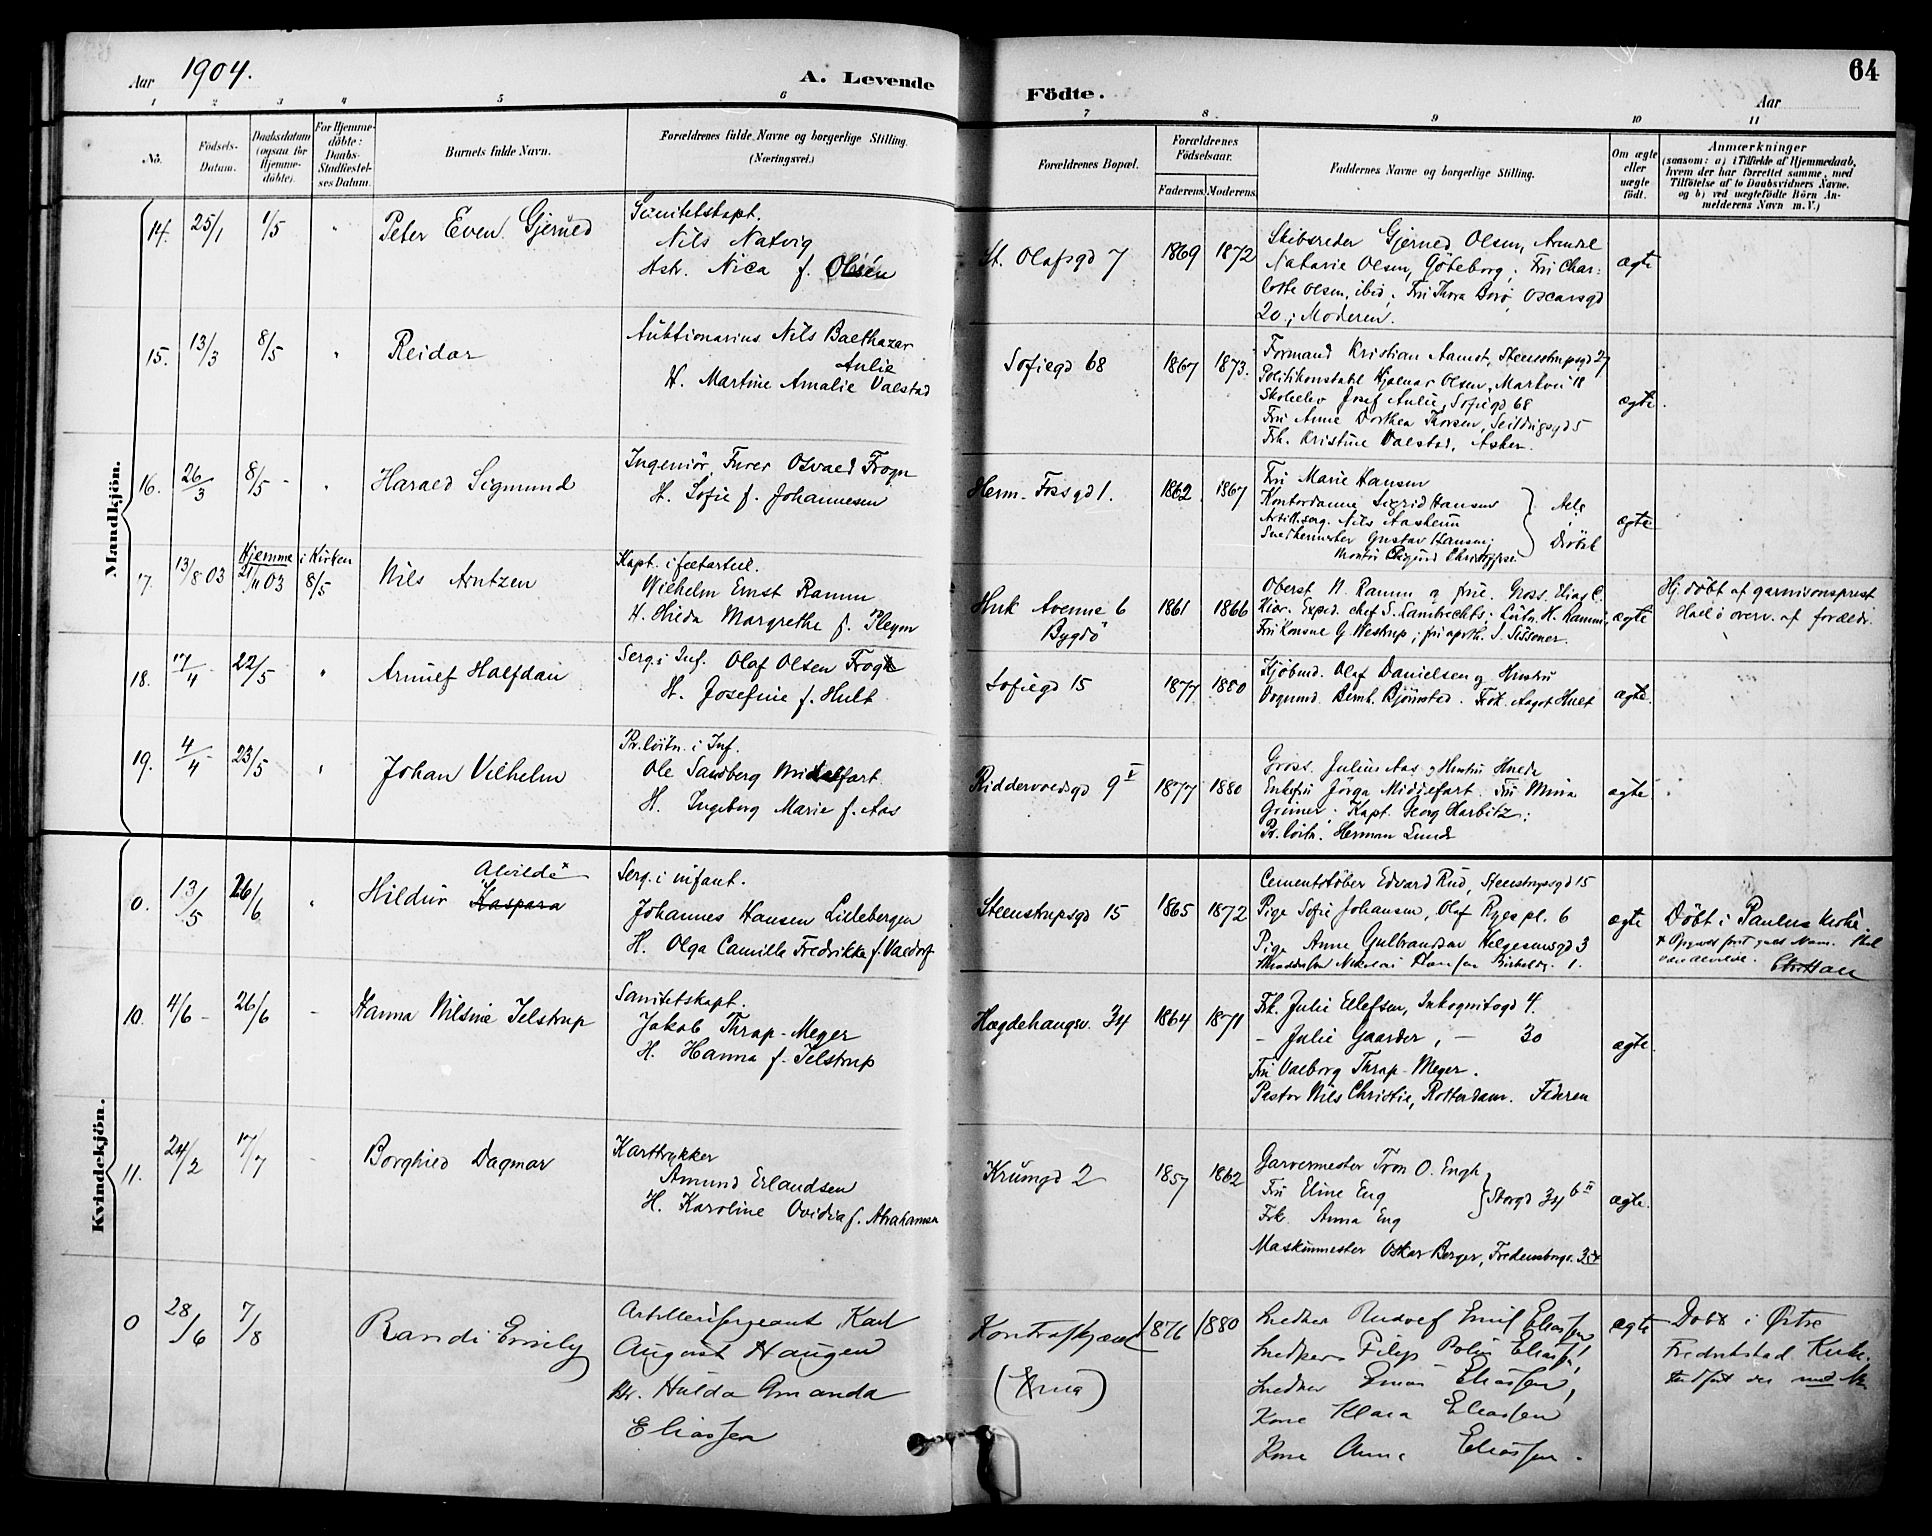 Aar 1904.
A. Levende Födte.
64
Aar
1 2 3 4 5 6 7 8 9 10 11
No.
Födsels-Datum.
Daabsdatum (ogsaa for Hjemme-döbte).
For Hjemme-döbte: Daabs-Stadfæstel-ses Datum.
Barnets fulde Navn.
Forældrenes fulde Navne og borgerlige Stilling. (Næringsvei.)
Forældrenes Bopæl.
Forældrenes Födselsaar.
Faderens. Moderens.
Faddernes Navne og borgerlige Stilling.
Om ægte eller uægte födt.
Anmærkninger
(saasom: a) i Tilfælde af Hjemmedaab,
hvem der har forrettet samme, med
Tilföielse af to Daabsvidners Navne.
og b) ved uægtefödte Börn An-
melderens Navn m. V.)
Mandkjön.
14. 25/1 1/5 " Peter Even Gjerued
Sanitetskapt.
Nils Natvig
Hstr. Nica f. Olsen
St. Olafsgd 7 1869 1872
Skibsreder Gjerued Olsen, Arendal
Natavie Olsen, Göteborg; Fru Char-
lotte Olsen, ibid; Fru Thora Borö, Oscarsgd
20; Moderen.
ægte
15. 13/3 8/5 " Reidar
Auktionarius Nils Balthazar
Aulie
H. Martine Amalie Valstad
Sofiegd 68 1867 1873.
Formand Kristian Aamot, Steenstrupsgd 27
Politikonstabl Hjalmar Olsen, Markvei 18
Skoleelev Josef Aulie, Sofiegd 68
Fru Anne Dorthea Thorsen, Seilduksgd 5
Frk. Kristine Valstad, Asker.
ægte.
16. 26/3 8/5 " Harald Sigmund
Ingeniör, Furer Osvald Frogn
H. Sofie f. Johannesen
Herm. Fossgd 1. 1862 1867
Fru Marie Hansen
Kontordame Sigrid Hansen
Artill.serg. Nils Aasheim
Snedkermester Gustav Hansen;
Montör Sigurd Christoffersen
Alle Dröbak
ægte
17. 13/8 03 Hjemme 21/11 03 i Kirken 8/5 Nils Arntzen
Kapt. i fæstartill.
Wilhelm Ernst Ramm
H. Hilda Margrethe f. Pleym
Huk Avenue 6
Bygdö
1861 1866
Oberst N. Ramm og frue. Gross. Elias C.
Kiær. Exped. chef S. Lambrechts; Löitn. H. Ramm;
Fru Konsul G. Westrup; fru apoth. S. Sissener.
ægte
Hj. döbt af garnisonsprest
Hall ö overv. af foreldr.
18. 17/4 22/5 " Arnulf Halfdan
Serg. i Inf. Olaf Olsen Frogn
H. Josefine f. Hult
Sofiegd 15 1877 1880
Kjöbmd. Olaf Danielsen og Hustru
Vognmd. Bernh. Björnstad. Frøk. Aagot Hult
ægte.
19. 4/4 23/5 " Johan Vilhelm
Pr.löitn. i Inf.
Ole Sandberg Middelfart
H. Ingeborg Marie f. Aas
Riddervoldsgd 9 V 1877 1880
Gross. Julius Aas og Hustru Hulda
Enkefru Jörga Middelfart. Fru Mina
Grüner; Kapt. Georg Harbitz;
Pr. löitn. Herman Lunde
ægte
Kvindekjön.
0. 13/5 26/6 " Hildur Kaspara Alvilde x
Serg. i infant.
Johannes Hansen Lillebergen
H. Olga Camilla Fredrikke f. Valdorf
Steenstrupsgd 15 1865 1872
Cementstöber Edvard Rud, Steenstrupsgd 15
Pige Sofie Johansen, Olaf Ryes pl. 6
Pige Anne Gulbrandsen Helgesensgd 3
Nikolai Hansen
ægte
Döbt i Paulus kirke.
10. 4/6 26/6 - Hanna Nilsine Jelstrup
Sanitetskapt.
Jakob Thrap-Meyer
H. Hanna f. Jelstrup
Hægdehaugsv. 34 1864 1871
Frk. Julie Ellefsen, Inkognitogd 4.
- Julie Gaarder, - 30
Fru Valborg Thrap-Meyer.
Pastor Nils Christie, Rotterdam. Faderen
ægte.
11. 24/2 17/7 - Borghild Dagmar
Karttrykker
Amund Erlandsen
H. Karoline Ovidia f. Abrahamsen
Krumgd 2 1857 1862
Garvermester Tron O. Engh
Fru Eline Eng
Frk. Anna Eng
Storgd 34 b II
Maskinmester Oskar Berger, Fredensborgv.
ægte.
0 28/6 7/8 Randi Emily
Artillerisergeant Karl
August Haugen
Hr. Hulda Amanda
Eliassen
Kontraskjæret 1876 1880
Snedker Rudolf Emil Eliassen
Snedker Filip Eliassen,
Snedker Eliassen,
Kone Klara Eliassen
Kone Anna Eliassen.
ægte
Döbt i Östre
Fredrikstad Kirke.